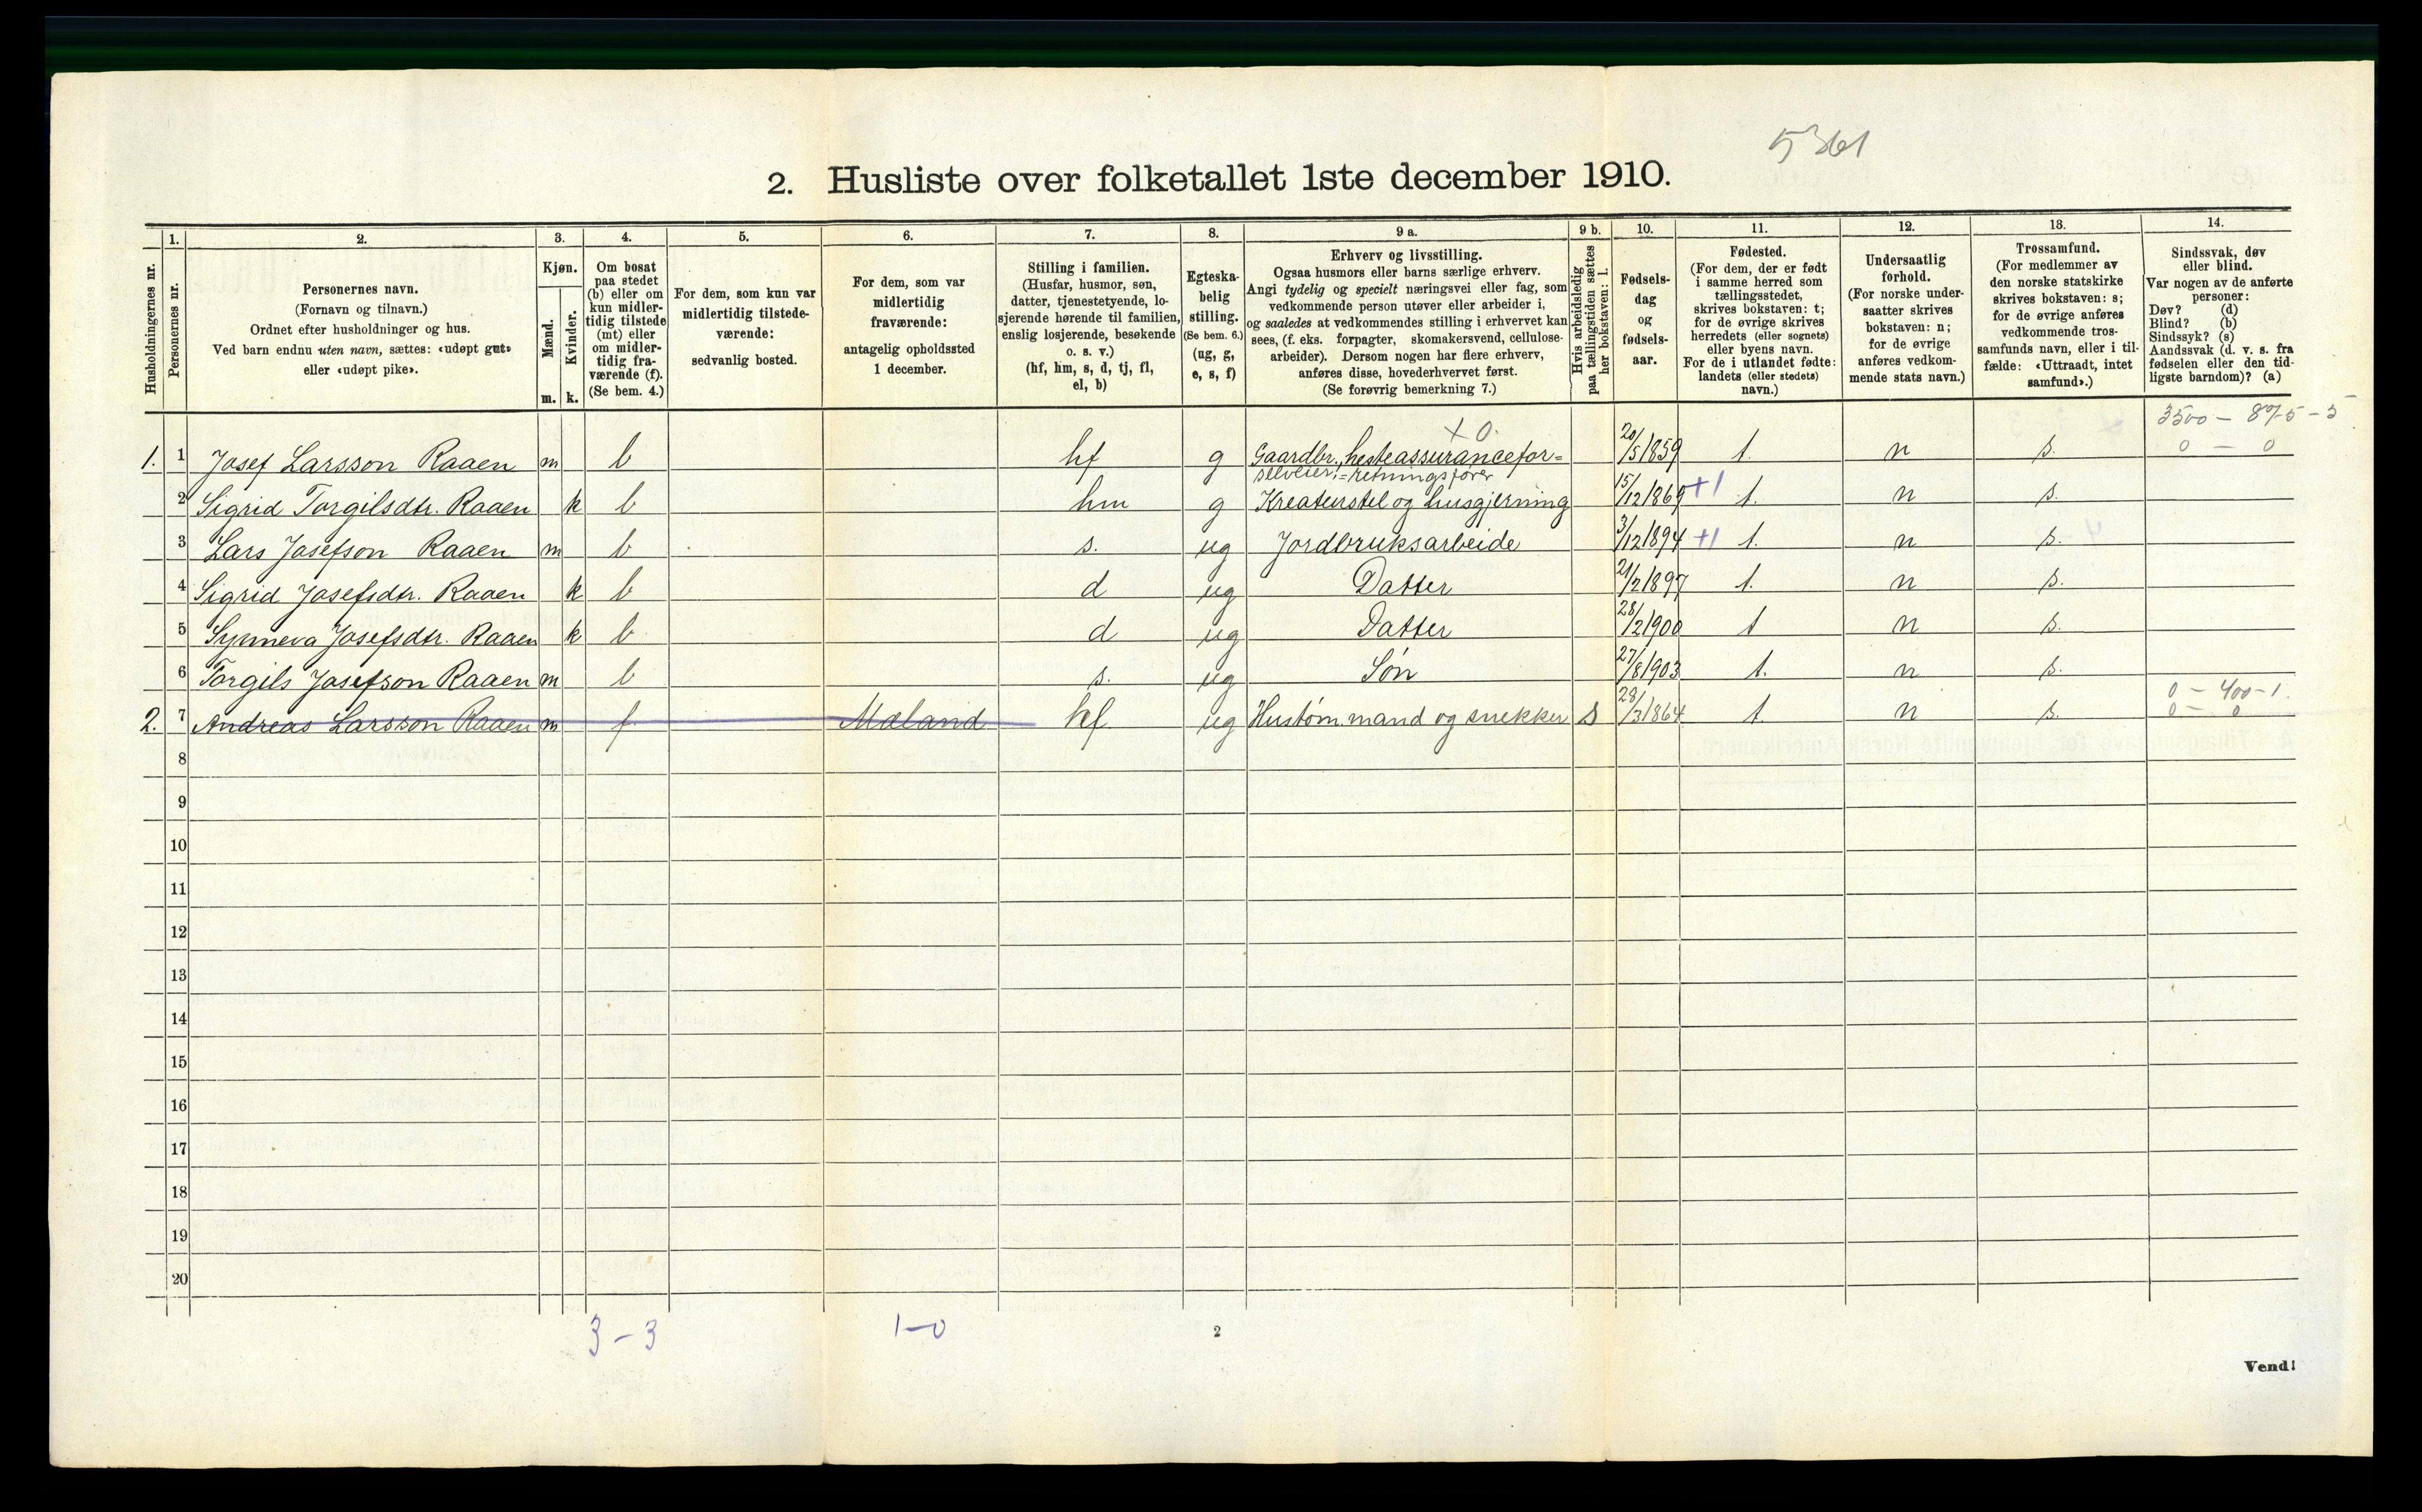 5361
2. Husliste over folketallet 1ste december 1910.
Husholdningernes nr.
1. Personernes nr.
2. Personernes navn.
(Fornavn og tilnavn.)
Ordnet efter husholdninger og hus.
Ved barn endnu uten navn, sættes: «udøpt gut»
eller «udøpt pike».
3. Kjøn.
Mænd. m.
Kvinder. k.
4. Om bosat
paa stedet
(b) eller om
kun midler-
tidig tilstede
(mt) eller
om midler-
tidig fra-
værende (f).
(Se bem. 4.)
5. For dem, som kun var
midlertidig tilstede-
værende:
sedvanlig bosted.
6. For dem, som var
midlertidig
fraværende:
antagelig opholdssted
1 december.
7. Stilling i familien.
(Husfar, husmor, søn,
datter, tjenestetyende, lo-
sjerende hørende til familien,
enslig losjerende, besøkende
o. s. v.)
(hf, hm, s, d, tj, fl,
el, b)
8. Egteska-
belig
stilling.
(Se bem. 6.)
(ug, g,
e, s, f)
9 a. Erhverv og livsstilling.
Ogsaa husmors eller barns særlige erhverv.
Angi tydelig og specielt næringsvei eller fag, som
vedkommende person utøver eller arbeider i,
og saaledes at vedkommendes stilling i erhvervet kan
sees, (f. eks. forpagter, skomakersvend, cellulose-
arbeider). Dersom nogen har flere erhverv,
anføres disse, hovederhvervet først.
(Se forøvrig bemerkning 7.)
9 b. Hvis arbeidsledig
paa tællingstiden sættes
her bokstaven: l.
10. Fødsels-
dag
og
fødsels-
aar.
11. Fødested.
(For dem, der er født
i samme herred som
tællingsstedet,
skrives bokstaven: t;
for de øvrige skrives
herredets (eller sognets)
eller byens navn.
For de i utlandet fødte:
landets (eller stedets)
navn.)
12. Undersaatlig
forhold.
(For norske under-
saatter skrives
bokstaven: n;
for de øvrige
anføres vedkom-
mende stats navn.)
13. Trossamfund.
(For medlemmer av
den norske statskirke
skrives bokstaven: s;
for de øvrige anføres
vedkommende tros-
samfunds navn, eller i til-
fælde: «Uttraadt, intet
samfund».)
14. Sindssvak, døv
eller blind.
Var nogen av de anførte
personer:
Døv? (d)
Blind? (b)
Sindssyk? (s)
Aandssvak (d. v. s. fra
fødselen eller den tid-
ligste barndom)? (a)
3500 - 875 - 5
+ 0.
1. 1 Josef Larsson Raaen m b hf g Gaardbr., hesteassurancefor= 20/5 1859 t. n s. 0 - 0
selveier, =retningsfører
2 Sigrid Torgilsdtr. Raaen k b hm g Kreaturstel og husgjerning 15/12 1869 +1 t. n s.
3 Lars Josefson Raaen m b s. ug Jordbruksarbeide 3/12 1894 +1 t. n s.
4 Sigrid Josefsdtr. Raaen k b d ug Datter 21/2 1897 t. n s.
5 Synneva Josefsdtr. Raaen k b d ug Datter 28/2 1900 t n s.
6 Torgils Josefson Raaen m b s. ug Søn 27/8 1903 t. n s.
0 - 400 - 1.
2. 7 Andreas Larsson Raaen m f Mæland hf ug Hustøm.mand og snekker s 28/3 1864 t. n s. 0 - 0
8
9
10
11
12
13
14
15
16
17
18
19
20
3 - 3 1-0
2
Vend!